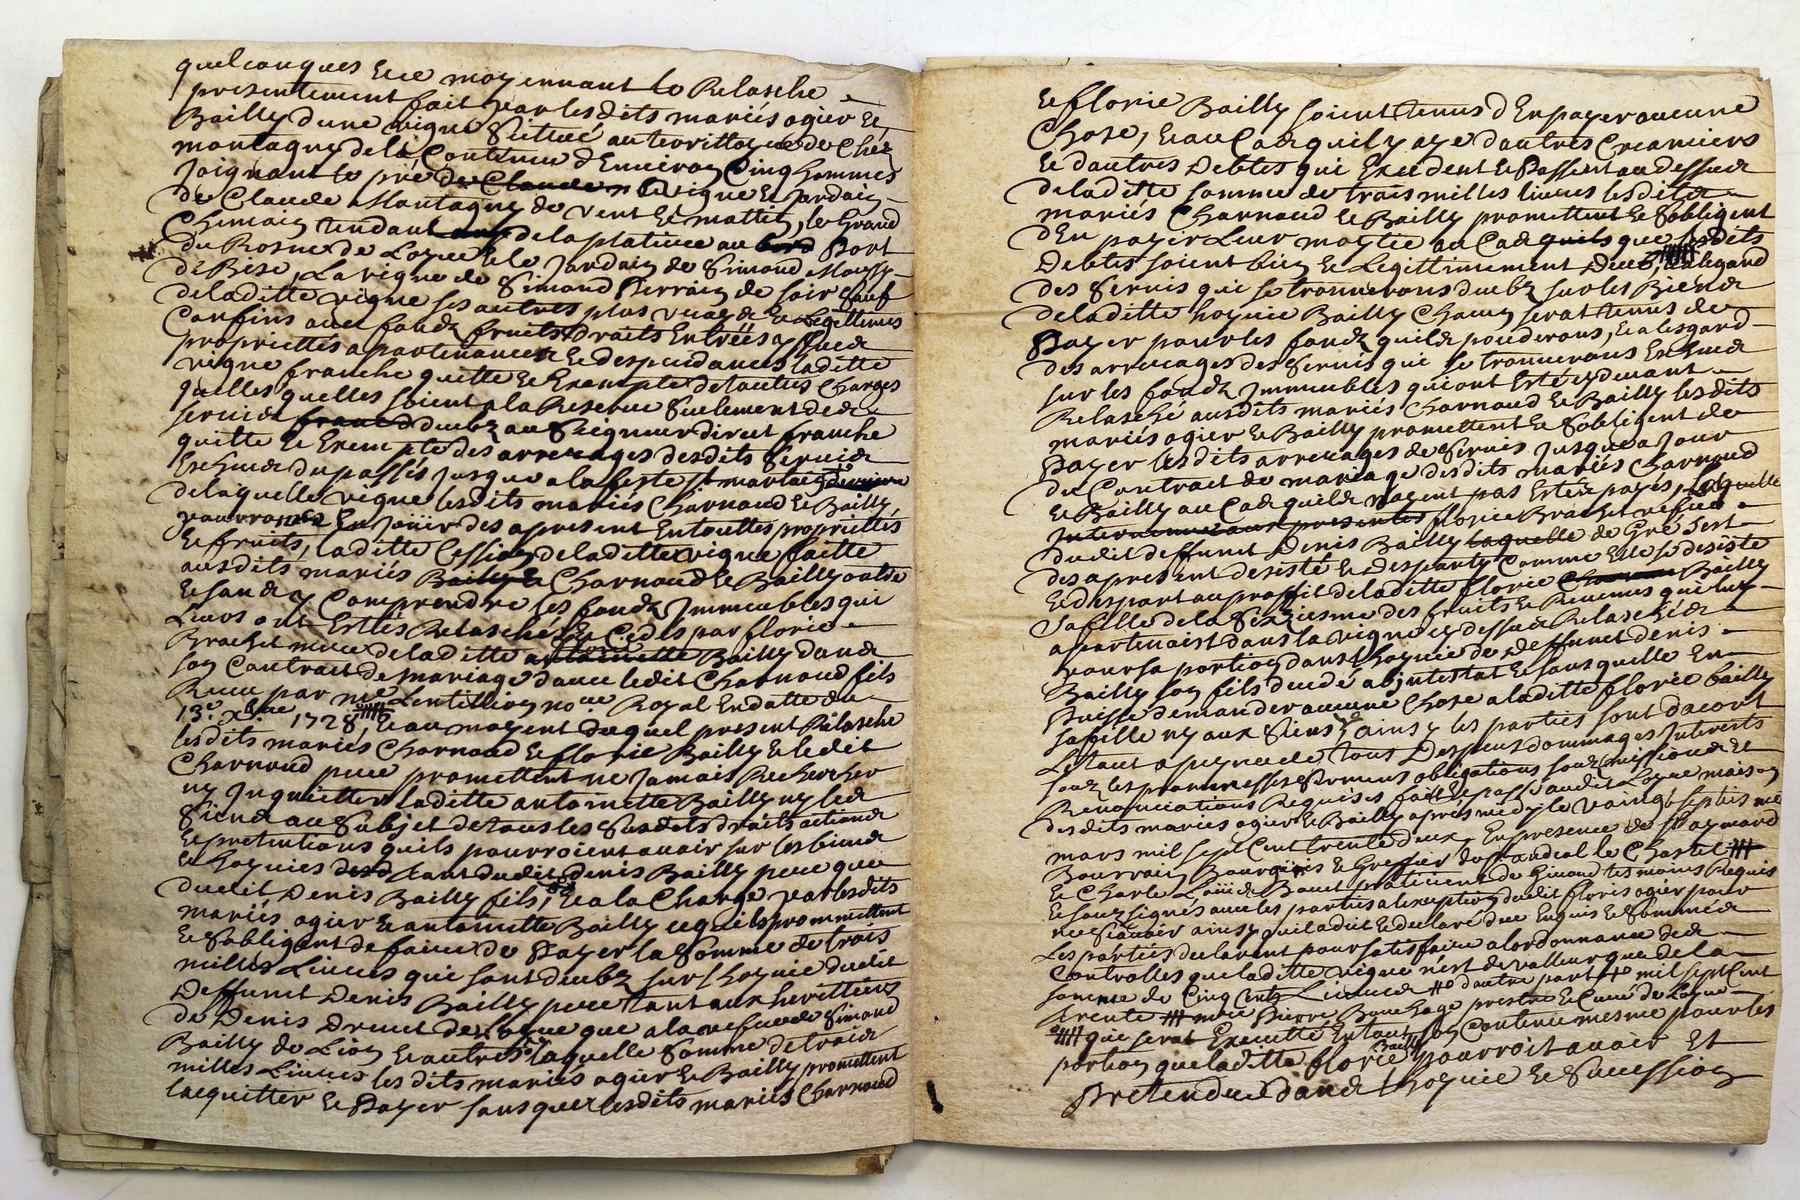 quelconques Et ce moyennant le Relasche
presentement fait par les dits mariés ogier Et
Bailly d'une vigne Scittué au territtoire de Chez
montagny de la Contenue d'Environ Cinq hommes
Joignant le pré de Claude vigne Et Jardain
de Claude Montagny de vent Et mattin, le Grand
Chemain tendant de la platiere au Port
du Rosne de Loyre Et le Jardain de Simond
de Bize, La vigne de Simond Perrain de soir Sauf
de laditte vigne ses autres plus vrays Et Legittimes
Confins avec fondz fruits droits Entrées yssues
proprietés apartenances Et despendances laditte
vigne franche quitte Et Exempte de toutes Charges
quelles quelles soient a la Reserve Seulement des
servis deubz au Seigneur direct franche
quitte Et Exempte des arrerages desdits Servis
Escheus du passés Jusque a la feste st martain derniere
de laquelle vigne lesdits mariés Charnaud Et Bailly
pourront En Jouir des apresent En touttes proprietés
Et fruits, laditte Cession de laditte vigne faitte
ausdits mariés Charnaud Et Bailly outre
Et sans y Comprendre les fondz Immeubles qui
Leurs ont Estés Relaschés Et Cédés par florie
Brachet mere de laditte florie Bailly dans
son Contrait de mariage avec ledit Charnaud fils
Receu par me Lentillion nore Royal En datte du
13e xbre 1728, Et au moyent duquel present Relasche
lesdits mariés Charnaud Et florie Bailly Et ledit
Charnaud pere promettent ne Jamais Rechercher
ny Inquietter laditte antoinette Bailly ny les
Siens au Subjet de tous les Susdits droits actions
Et pretentions quils pourroient avoir sur les biens
Et hoyries tant dudit denis Bailly pere que
dudit Denis Bailly fils, Et a la Charge par lesdits
mariés ogier Et antoinette Bailly ce quils promettent
Et Sobligent de faire de Payer la Somme de trois
milles Livres qui sont deubz sur lhoyrie dudit
deffunct Denis Bailly pere tant aux herittiers
de Denis Drevet de Loyre que a la vefve de Simond
Bailly de Lion Et autres laquelle Somme de trois
milles Livres les dits mariés ogier Et Bailly promettent
lacquitter Et Payer sans que lesdits mariés Charnaud
Et florie Bailly soient tenus d'En payer aucune
Chose, Et au Cas quil y aye dautres Creanciers
Et dautres Debtes qui Excedent Et Passent au dessus
de laditte somme de trois milles livres les dits
mariés Charnaud Et Bailly promettent Et Sobligent
d'En payer Leur moytié au Cas que lesdits
Debtes soient bien Et Legittimement Deus, Et alegard
des Servis qui se trouverons deubz sur les Biens
de laditte hoyrie Bailly Chacun serat tenus de
Payer pour les fondz quils pouderons, Et a lesgard
des arrerages des Servis qui se trouverons Escheus
sur les fondz Immeubles qui ont Esté cy devant
Relasché ausdits mariés Charnaud Et Bailly les dits
mariés ogier Et Bailly promettent Et Sobligent de
Payer lesdits arrerages de Servis Jusque a Jour
du Contrait de mariage desdits mariés Charnaud
Et Bailly au Cas quils nayent pas Estés payés,
Intervenue aux presentes florie Brachet vefve
dudit deffunct Denis Bailly laquelle de Gré sest
des apresent desisté Et desparty Comme Elle se desiste
Et despart au proffit de laditte florie Bailly
Sa fille de la Seiziesme des fruits Et Revenus qui luy
apartenoist dans la vigne cy dessus Relaschés
pour sa portion dans lhoyrie de deffunct denis
Bailly son fils decedé abjntestat Et sans quelle En
Puisse demander aucune Chose a laditte florie bailly
sa fille ny aux Siens, ainsy les parties sont dacort
Et tant a peyne de tous Despens dommages Interests
sous les promesses Serments obligations sousmissions Et
Renonciations Requises fait Et passé audit Loyre maison
desdits mariés ogier Et Bailly apres midy le vaingt septiesme
mars mil sept Cent trente deux, En presence de Sr aymard
Bourvain Bourgois Et Greffier de le Chastel
Et Charle Louis Bonet praticient de Givord tesmoins Requis
Et sous signés avec les parties a lexception dudit floris ogier pour
ne Scavoir ainsy quil a dit Et declaré de ce Enquis Et Sommé
Les parties declarent pour satisfaire a lordonnance des
Controlles que laditte vigne n'est de valleur que de la
somme de Cinq Cents Livres dautre part mil sept Cent
trente mre Pierre prestre Et Curé de Loyre
que serat Executté En tout son Contenu mesme pour les
portion que laditte florie Bailly pourroit avoir Et
Pretendre dans lhoyrie Et Succession